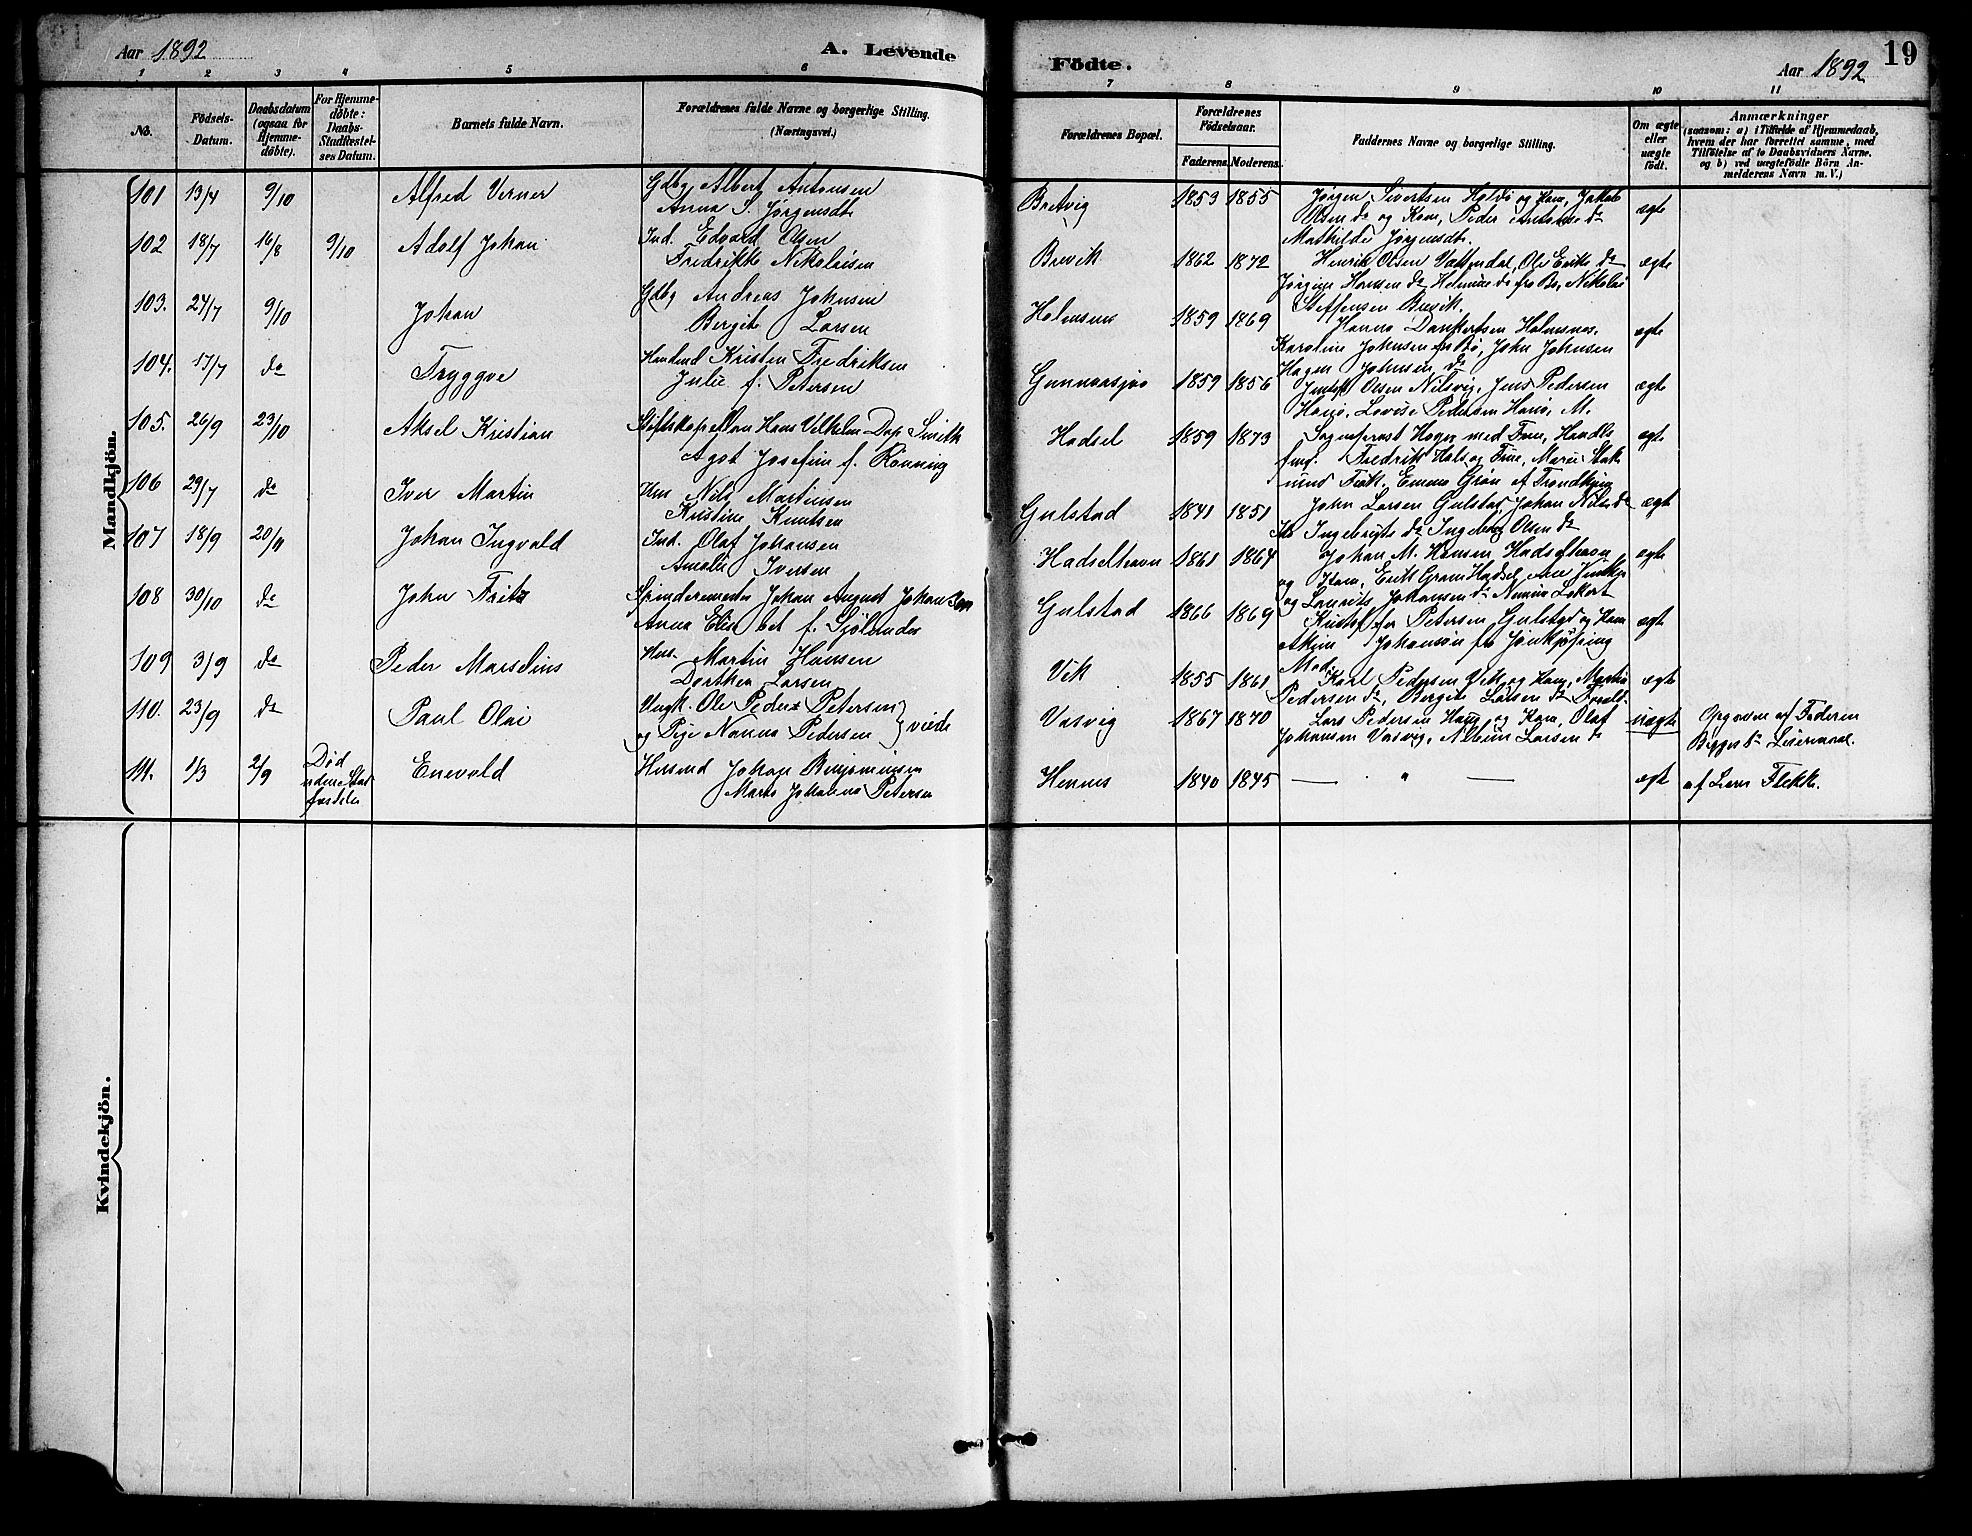 Aar 1892
A. Levende
Födte.
Aar 1892
19
1 2 3 4 5 6 7 8 9 10 11
No.
Födsels-
Datum.
Daabsdatum
(ogsaa for
Hjemme-
döbte).
For Hjemme-
döbte:
Daabs-
Stadfæstel-
ses Datum.
Barnets fulde Navn.
Forældrenes fulde Navne og borgerlige Stilling.
(Næringsvei.)
Forældrenes Bopæl.
Forældrenes
Födselsaar.
Faderens. Moderens.
Faddernes Navne og borgerlige Stilling.
Om ægte
eller
uægte
födt.
Anmærkninger
(saasom: a) i Tilfælde af Hjemmedaab,
hvem der har forrettet samme, med
Tilföielse af to Daabsvidners Navne,
og b) ved uægtefödte Börn An-
melderens Navn m. V.)
Mandkjön.
101 13/4 9/10 Alfred Verner
Gdbg Albert Antonsen
Anna S. Jørgensdtr
Bretvig 1853 1855
Jørgen Sivertsen Holdø og Kone, Jakob
Olsen do og Kone, Peder Antonsen do
Mathilde Jørgensdtr.
ægte
102 18/7 16/8 9/10 Adolf Johan
Ind. Edvard Olsen
Fredrikke Nikolaisen
Brevik 1862 1872
Henrik Olsen Vattendal, Ole do
Jørgine Hansen do do fra Bø, Nikolai
Steffensen Brevik.
ægte
103. 24/7 9/10 Johan
Gdbg Andreas Johnsen
Bergite Larsen
Holmsnes 1859 1869
Hanna Dankertsen Holmsnes.
Karoline Johnsen fra Bø, John Johnsen
Hagen Johnsen do
ægte
104. 17/7 do Tryggve
Kristen Fredriksen
Julie f. Petersen
1859 1856
Olsen Nilsvig, Jens Pedersen
Lovise Pedersen M.
ægte
105. 26/9 23/10 Aksel Kristian
Stiftskapellan Hans Vilhelm Dop Smith
Agot Josefine f. Rønning
Hadsel 1859 1873
Sogneprest Hogn med Frue, Handls
fuld. Fredrik Hals og Frue, Marie Stok
mund Fisk. Emma Grøn af Trondhjem
ægte
106 29/7 do Iver Martin
Hus Nils Martinsen
Kristine Knutsen
Gulstad 1841 1851
John Larsen Gulstad, Johan Nilsen do
Ingebrigts do Ingeborg Olsen do
ægte
107 18/9 20/11 Johan Ingvald
Ind. Olaf Johansen
Amalie Iversen
Hadselhavn 1861 1864
Johan M. Hansen Hadselhavn
og Kone, Erik Gram Hadsel
og Laurits Johansen do
ægte
108 30/10 do John Fritz
Spinderimester Johan August Johanson
Anna Elisabet f. Sjølander
Gulstad 1866 1869
Kristoffer Petersen Gulstad og Kone
Johansøn fra Jønkøping
ægte
109 3/9 do Peder Marselius
Hus. Martin Hansen
Dorthea Larsen
Vik 1855 1861
Karl Pedersen Vik og Kone, Martin
Pedersen do, Bergite Larsen do
ægte
110. 23/9 do Paul Olai
Ungk. Ole Peder Petersen
og Pige Nanna Pedersen } viede
Vasvig 1867 1870
Lars Pedersen og Kone, Olaf
Johansen Vasvig, Larsen do
uægte
Opgaven af Faderen
Begges 1ste Leiermaal.
111. 1/3 2/9
Død
uden Stad
fæstelse
Enevold
Johan Benjaminsen
Marta Johanna Petersen
Hennes 1840 1845
— " —
ægte
af Flekke.
Kvindekjön.